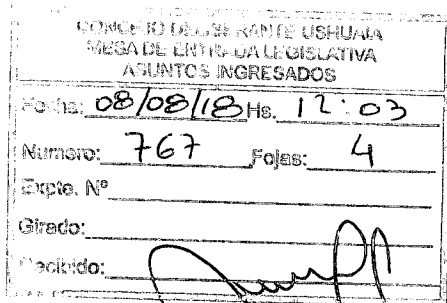 CONCEJO DELIBERANTE USHUAIA
MESA DE ENTRADA LEGISLATIVA
ASUNTOS INGRESADOS
Fecha: 08/08/18 Hs. 12:03
Numero: 767 Fojas: 4
Expte. Nº
Girado:
Recibido: